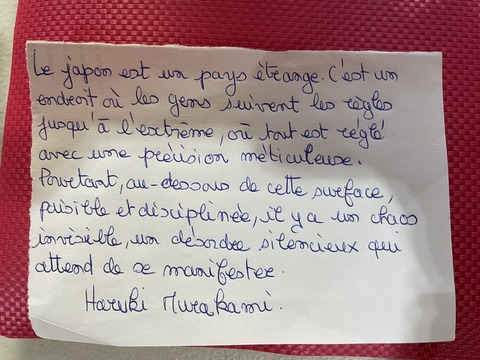 Le japon est un pays étrange. C'est un
endroit où les gens suivent les règles
jusqu'à l'extrême, où tout est réglé
avec une précision méticuleuse.
Pourtant, au-dessous de cette surface,
paisible et disciplinée, il y a un chaos
invisible, un désordre silencieux qui
attend de se manifester.
Haruki Murakami.